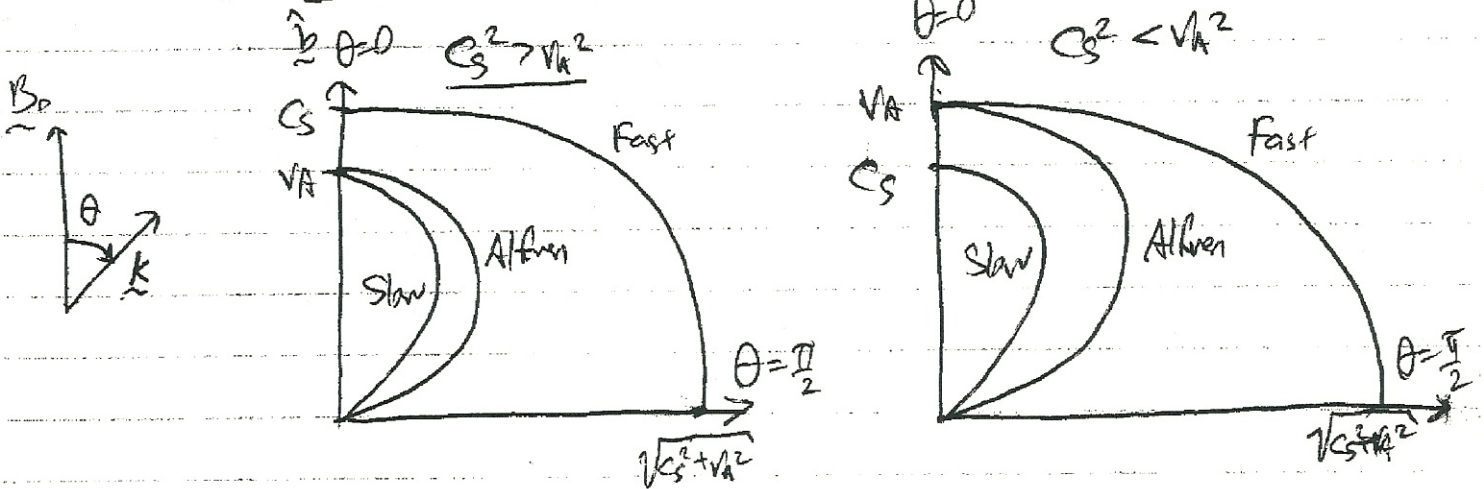 B₀
θ
k
b̂ θ=0
Cs² > VA²
Cs
VA
Fast
Alfven
Slow
θ = π/2
√Cs²+VA²
θ=0
Cs² < VA²
VA
Cs
Fast
Alfven
Slow
θ = π/2
√Cs²+VA²